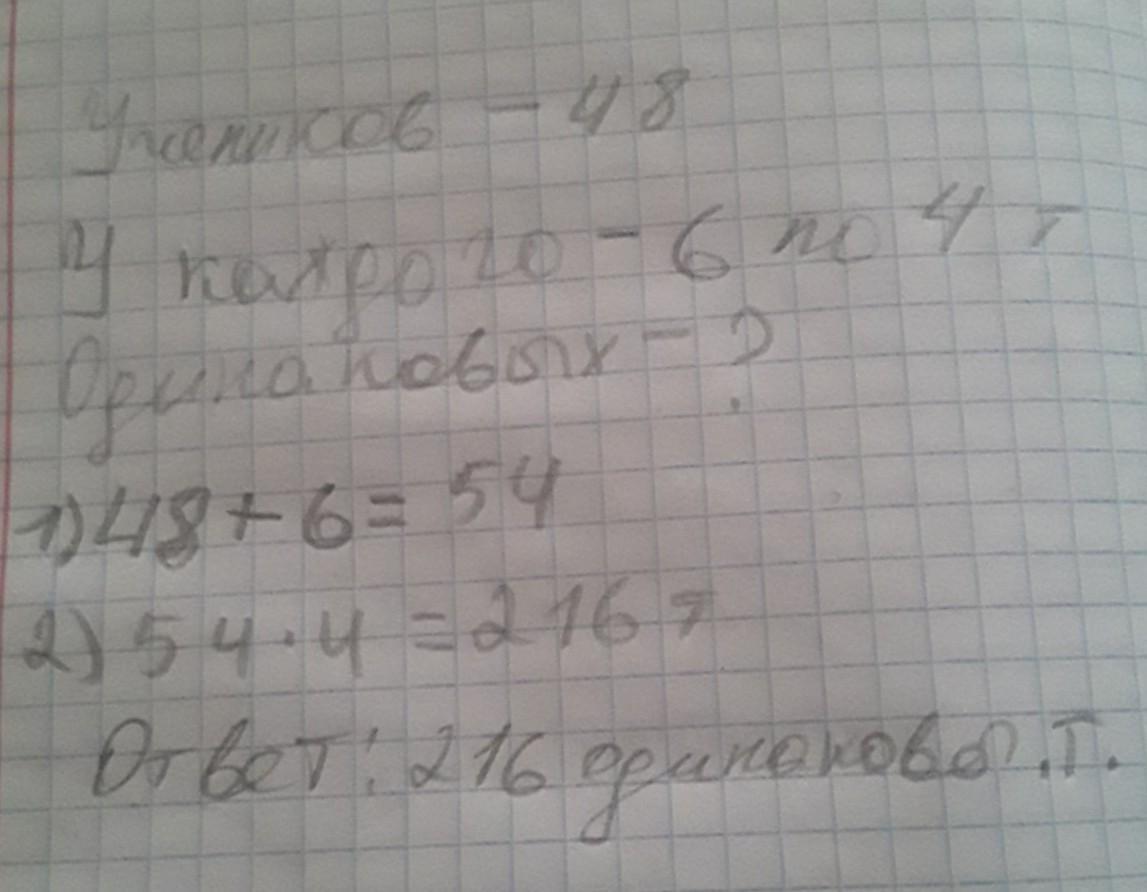 Учеников - 48
У каждого - 6 по 4 т
Одинаковых - ?
1) 48 + 6 = 54
2) 54 · 4 = 216 т
Ответ: 216 одинаковы. т.